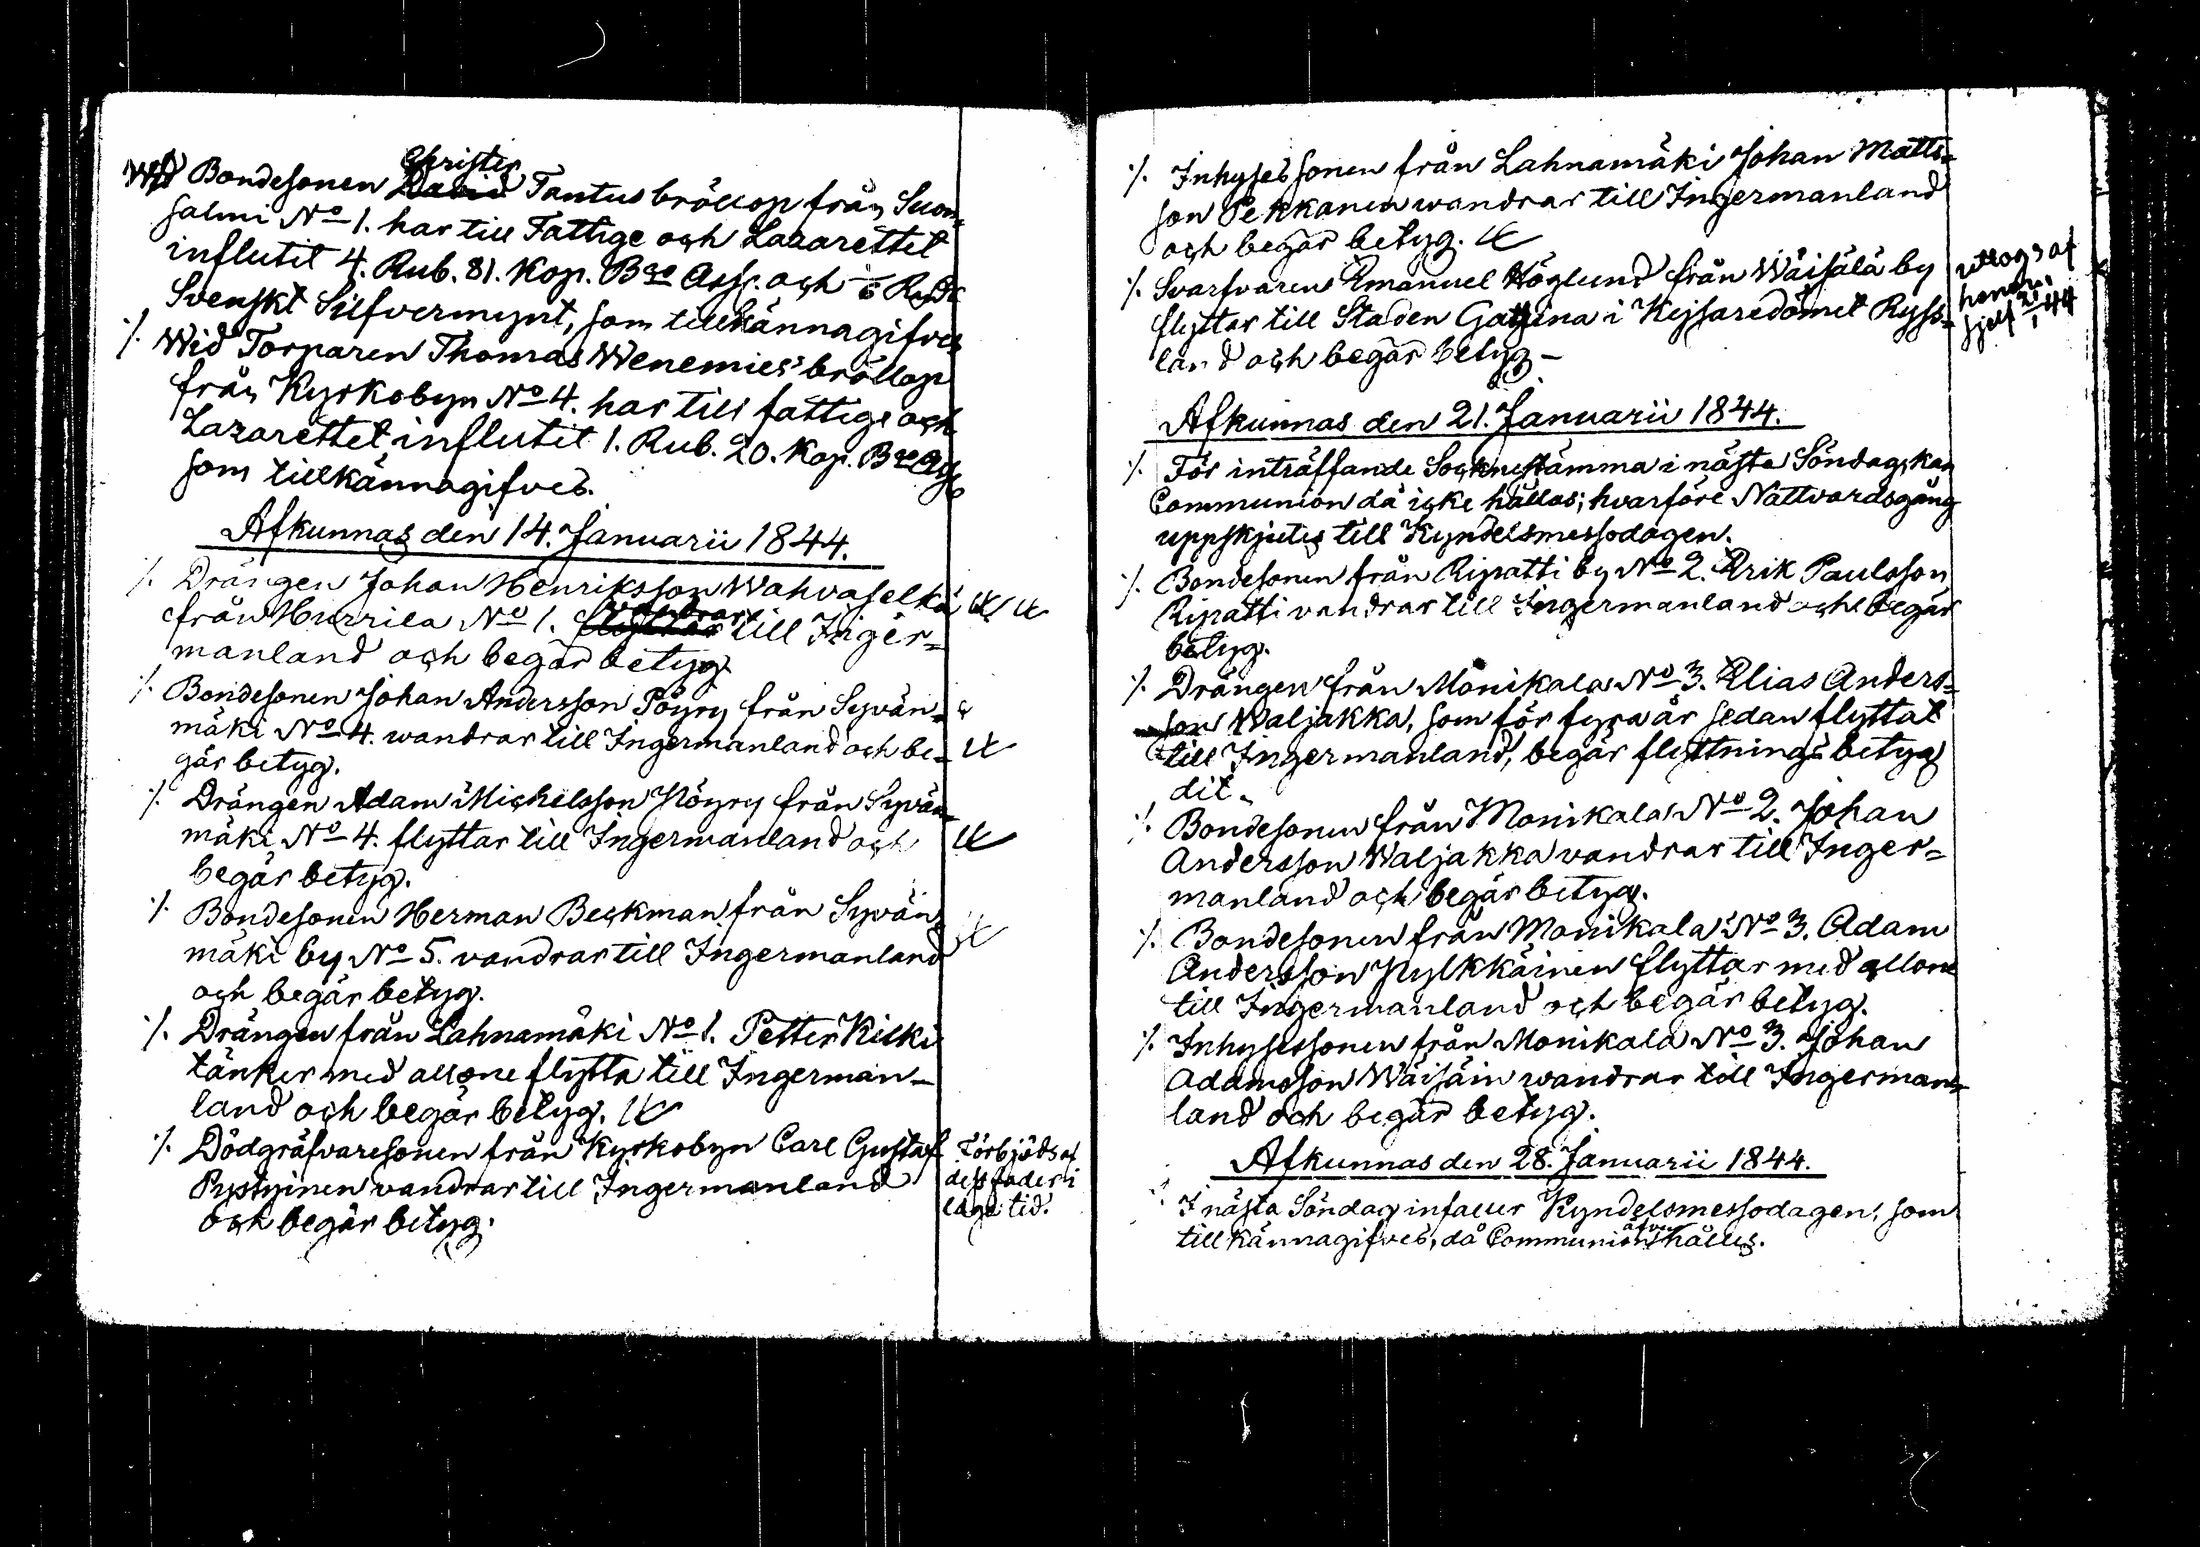 Wid Bondesonen Christer David Tantus bröllop från Suon=
salmi No 1. har till Fattige och Lazarettet
influtit 4. Rub. 81. Kop. Bco Ass. och
Svenskt Silfvermynt, som tillkännagifves
./. Wid Torparen Thomas Wenemies' bröllop
från Kyrkobyn No 4. har till fattige och
Lazarettet influtit 1. Rub. 20. Kop. Bco Ass
som tillkännagifves.
Afkunnas den 14. Januarii 1844.
./. Drängen Johan Henriksson Wahvaselkä
från Hurrila No 1. flyttar wandrar till Inger=
manland och begär betyg.
./. Bondesonen Johan Andersson Pöyry från Syvän=
mäki No 4. wandrar till Ingermanland och be=
gär betyg.
./. Drängen Adam Michelsson Pöyry från Syvän=
mäki No 4. flyttar till Ingermanland och
begär betyg.
./. Bondesonen Herman Beckman från Syvän=
mäki by No 5. vandrar till Ingermanland
och begär betyg.
./. Drängen från Lahnamäki No 1. Petter Kilki
tänker med all one flytta till Ingerman=
land och begär betyg.
./. Dödgräfvaresonen från Kyrkobyn Carl Gustaf
Pystyinen vandrar till Ingermanland
och begär betyg.
Förbjöds af
dess fader i
laga tid.
./. Inhyses sonen från Lahnamäki Johan Matts=
son Pekkanen wandrar till Ingermanland
och begär betyg.
./. Svarfvaren Emanuel Höglund från Wäisälä by
flyttar till Staden Gatshina i Kejsaredömet Ryss=
land och begär betyg –
uttogs af
honom
sjelf 2/1 44
Afkunnas den 21. Januarii 1844.
./. För inträffande Sockenstämma i nästa Söndag, kan
Communion då icke hållas; hvarföre Nattvardsgång
uppskjutes till Kyndelsmessodagen.
./. Bondesonen från Ripatti by No 2. Erik Paulsson
Ripatti vandrar till Ingermanland och begär
betyg.
./. Drängen från Monikala No 3. Elias Anders=
son Waljakka, som för fyra år sedan flyttat
till Ingermanland, begär flyttnings betyg
dit.
./. Bondesonen från Monikala No 2. Johan
Andersson Waljakka vandrar till Inger=
manland och begär betyg.
./. Bondesonen från Monikala No 3. Adam
Andersson Pylkkäinen flyttar med allone
till Ingermanland och begär betyg.
./. Inhysessonen från Monikala No 3. Johan
Adamsson Wäisäin wandrar till Ingerman=
land och begär betyg.
Afkunnas den 28. Januarii 1844.
./. I nästa Söndag infaller Kyndelsmessodagen, som
tillkännagifves, då Communion äfven hålles.